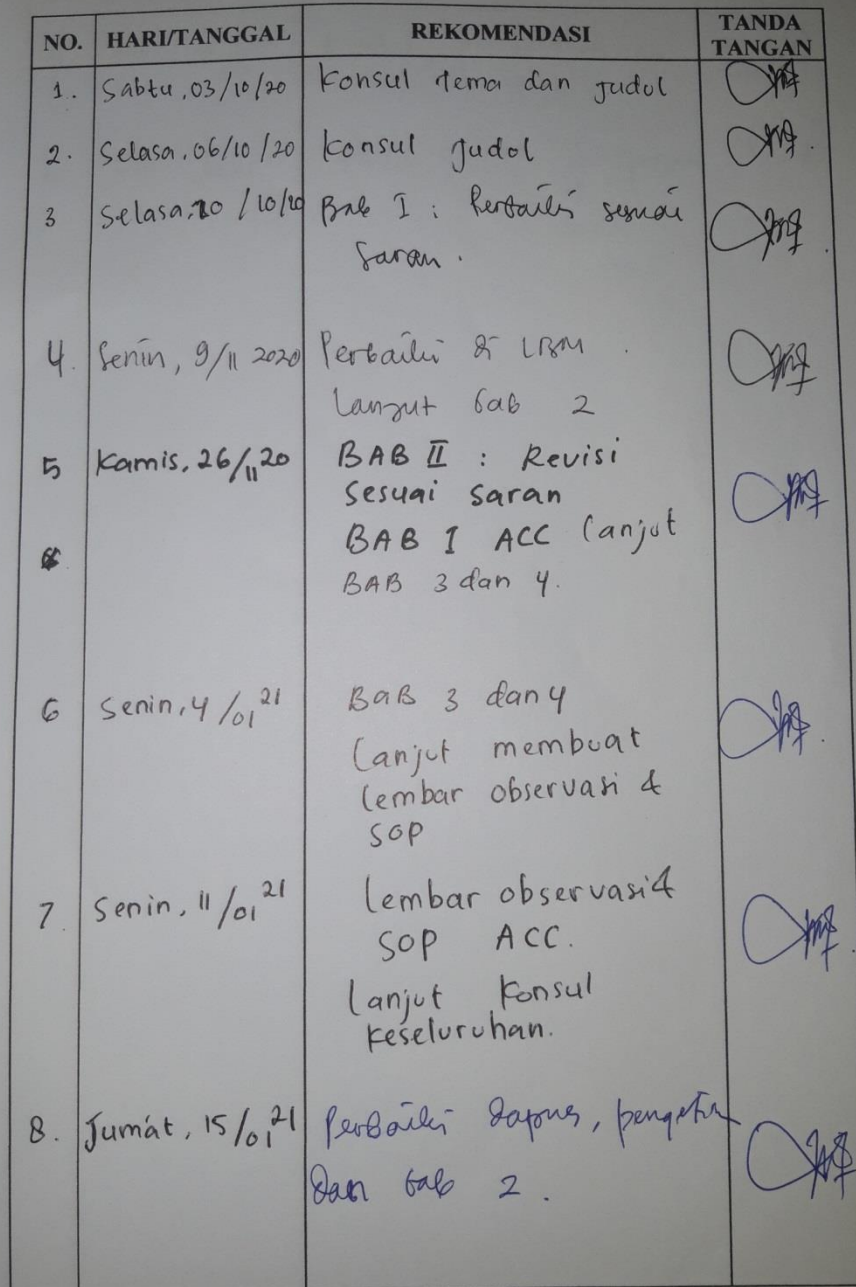 NO. HARI/TANGGAL REKOMENDASI TANDA TANGAN
1. Sabtu, 03/10/20 Konsul tema dan Judul
2. Selasa, 06/10/20 Konsul Judul
3 Selasa, 20/10/20 Bab I : Perbaiki sesuai
saran.
4. Senin, 9/11 2020 Perbaiki di LBM.
Lanjut bab 2
5 Kamis, 26/11 20 BAB II : Revisi
sesuai saran
BAB I ACC Lanjut
BAB 3 dan 4.
6 Senin, 4/01 21 BaB 3 dan 4
Lanjut membuat
lembar observasi &
SOP
7. Senin, 11/01 21 lembar observasi &
SOP ACC.
lanjut Konsul
keseluruhan.
8. Jumát, 15/01 21 Perbaiki dapus, pengetikan
dan bab 2.